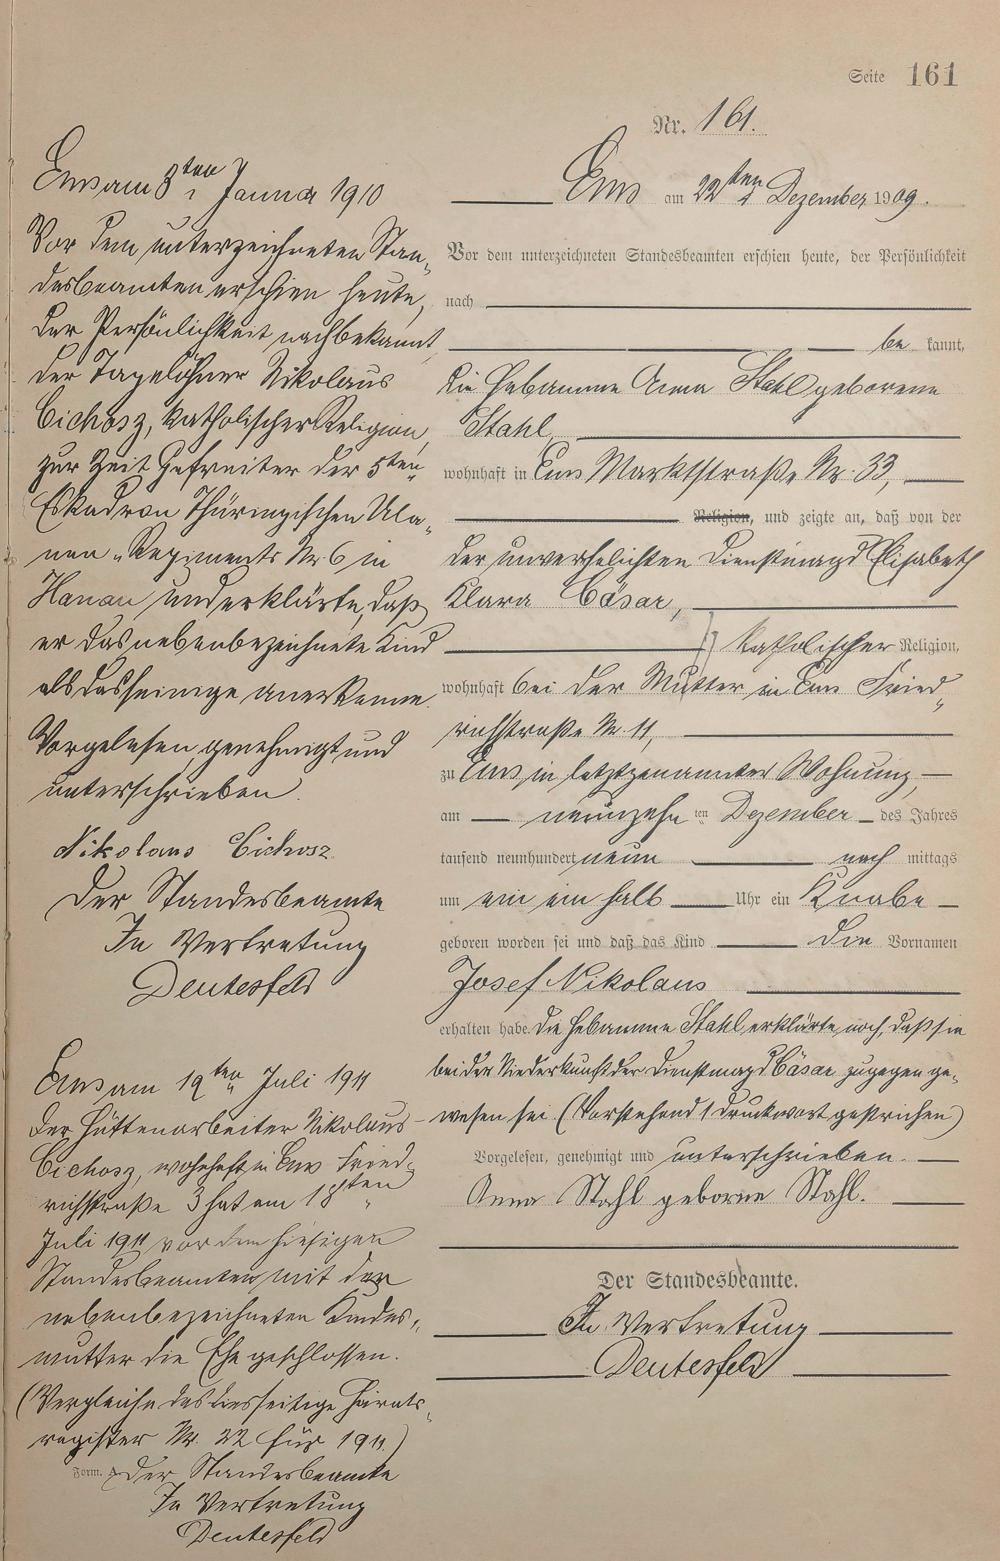 Seite 161
Nr. 161.
Ems am 22ten Dezember 1909.
Vor dem unterzeichneten Standesbeamten erschien heute, der Persönlichkeit
nach
be kannt,
die Hebamme Anna Stahl geborene
Stahl,
wohnhaft in Ems Marktstraße Nr. 33,
Religion, und zeigte an, daß von der
der unverehelichten Dienstmagd Elisabeth
Klara Cäsar,
katholischer Religion,
wohnhaft bei der Mutter in Ems Fried„
richstraße Nr. 11,
zu Ems, in letztgenannter Wohnung,
am neunzehn ten Dezember des Jahres
tausend neunhundert neun nach mittags
um ein ein halb Uhr ein Knabe
geboren worden sei und daß das Kind die Vornamen
Josef Nikolaus
erhalten habe. Die Hebamme Stahl erklärte noch, daß sie
bei der Niederkunft der Dienstmagd Cäsar zugegen ge„
wesen sei. (Vorstehend 1 Druckwort gestrichen)
Vorgelesen, genehmigt und unterschrieben.
Anna Stahl geborne Stahl.
Der Standesbeamte.
In Vertretung
Deutesfeld
Ems am 3ten Januar 1910
Vor dem unterzeichneten Stan„
desbeamten erschien heute,
der Persönlichkeit nach bekannt,
der Tagelöhner Nikolaus
Cichosz, katholischer Religion,
zur Zeit Gefreiter der 5ten
Eskadron Thüringischen Ula„
nen-Regiments Nr. 6 in
Hanau und erklärte, daß
er das nebenbezeichnete Kind
als das seinige anerkenne.
Vorgelesen, genehmigt und
unterschrieben.
Nikolaus Cichosz
Der Standesbeamte
In Vertretung
Deutesfeld
Ems am 19ten Juli 1911
Der Hüttenarbeiter Nikolaus
Cichosz, wohnhaft in Ems Fried„
richstraße 3 hat am 18ten
Juli 1911 vor dem hiesigen
Standesbeamten mit der
nebenbezeichneten Kindes„
mutter die Ehe geschlossen.
(Vergleiche das diesseitige Heirats„
register Nr. 22 für 1911.)
Form. A. Der Standesbeamte
In Vertretung
Deutesfeld